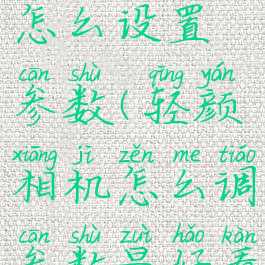 怎么设置
cān shù qīng yán
参数(轻颜
xiāng jī zěn me tiáo
相机怎么调
cān shù zuì hǎo kàn
参数最好看